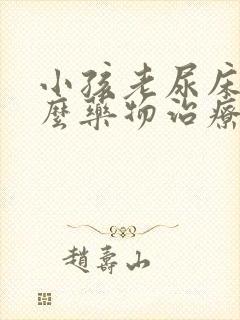 小孩老尿床
麼藥物治療
趙壽山